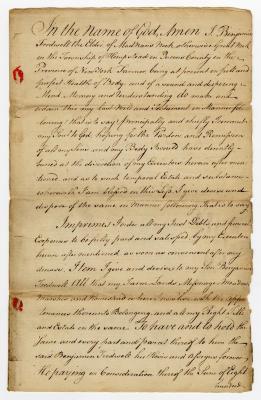 In the Name of God, Amen I Benjamin
Treedwell the Elder of Madnans Neck otherwise Great Neck
in the Township of Hempstead in Queens County in the
Province of New York Farmer being at present in full and
perfect Health of Body and of a sound and disposing
Mind Memory and Understanding do make and
ordain this my last Will and Testament in Manner fol
lowing that is to say Principally and chiefly I commit
my Soul to God hoping for the Pardon and Remission
of all my Sins and my Body to be decently
buried at the discretion of my Executors herein after men
tioned and as to such temporal Estate and substance
wherewith I am blessed in this Life I give devise and
dispose of the same in Manner following That is to say
Imprimis I order all my Just Debts and funeral
Expences to be fully paid and satisfied by my Executors
herein after mentioned as soon as convenient after my
decease. Item I give and devise to my Son Benjamin
Treedwell All that my Farm Lands Messuage Meadows
Marshes and
thereunto Belonging and all my Right Title
and Estate in the same To have and to hold the
same and every part and parcel thereof to him the
said Benjamin Treedwell his Heirs and Assigns forever
He paying in Consideration thereof the Sum of Eight
hundred